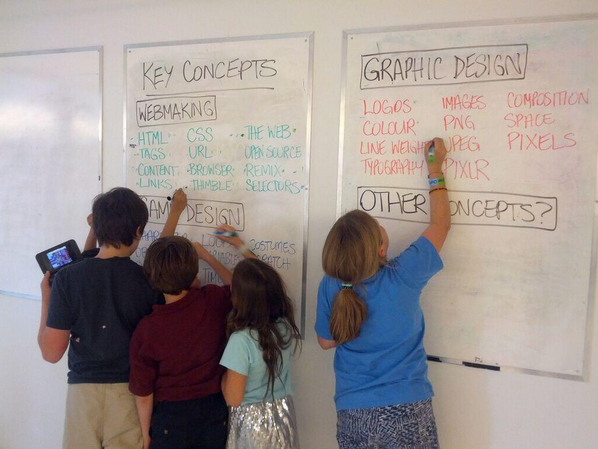 KEY CONCEPTS
WEBMAKING
HTML CSS THE WEB
TAGS URL OPEN SOURCE
CONTENT BROWSER REMIX
LINKS THIMBLE SELECTORS
DESIGN
COSTUMES
GRAPHIC DESIGN
LOGOS IMAGES COMPOSITION
COLOUR PNG SPACE
LINE WEIGHT JPEG PIXELS
TYPOGRAPHY PIXLR
OTHER CONCEPTS?